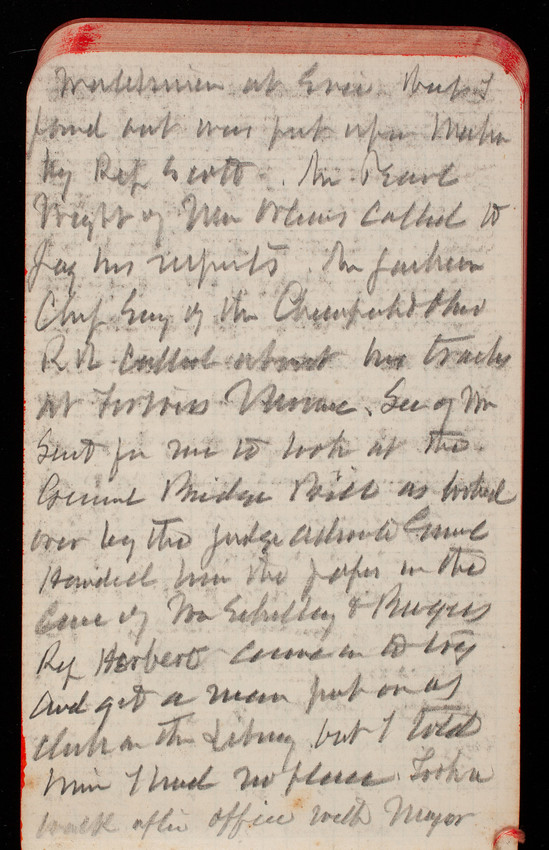 at Erie that I
found out was put upon
by Rep Scott. Mr Pearl
Wright of New Orleans called to
pay his respects. Mr Jackson
Chf Eng of the Chesapeake & Ohio
R R called about his tracks
at Fortress Monroe. Sec of War
Sent for me to look at the
Bridge Bill as looked
over by the Judge Advocate Genl
Handed him the paper in the
Case of Wm &
Rep Herbert came in to try
and get a man put on as
clerk on the Library but I told
him I had no place. Took a
walk after office with Major